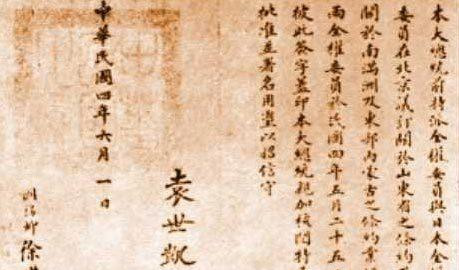 本大總統前特派全權委員與日本全
委員在北京議訂關於山東省之條約
關於南滿洲及東部內蒙古之條約業
兩全權委員於民國四年五月二十五
彼此簽字蓋印本大總統親加核閱特
批准並署名用璽以昭信守
袁世凱
中華民國四年六月一日
國務卿徐